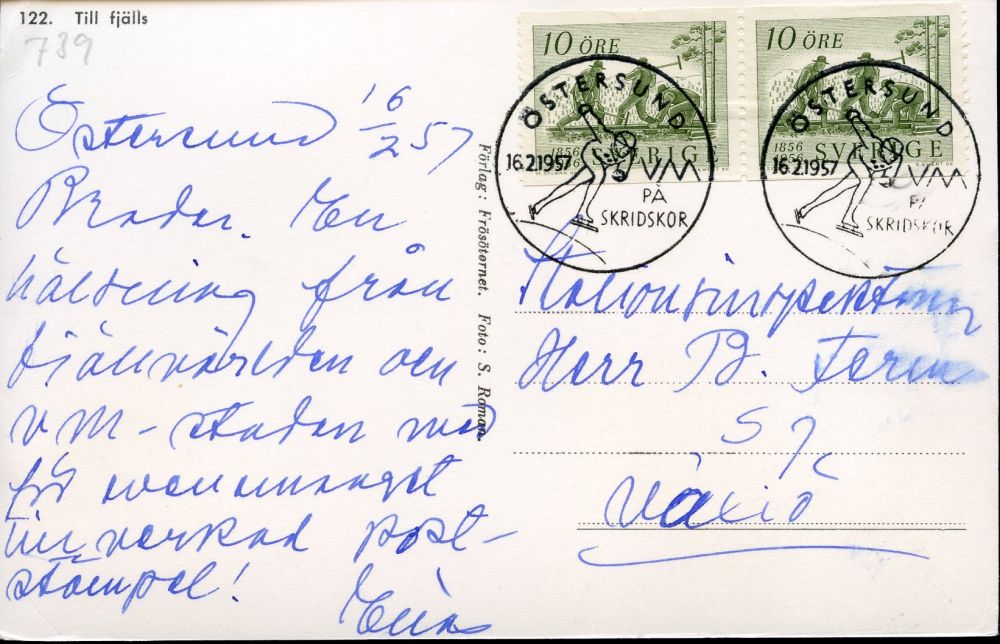 122. Till fjälls
739
Östersund 16/2 57
Broder. En
hälsning från
fjällvärlden och
VM-staden med
för evenemanget
tillverkad post-
stämpel!
Förlag: Frösötornet. Foto: S. Roman.
10 ÖRE
1856
1956
SVERIGE
10 ÖRE
1856
1956
SVERIGE
ÖSTERSUND
16.2.1957
VM
PÅ
SKRIDSKOR
ÖSTERSUND
16.2.1957
VM
PÅ
SKRIDSKOR
Stationsinspektoren
Herr B. Ferm
SJ
Växiö